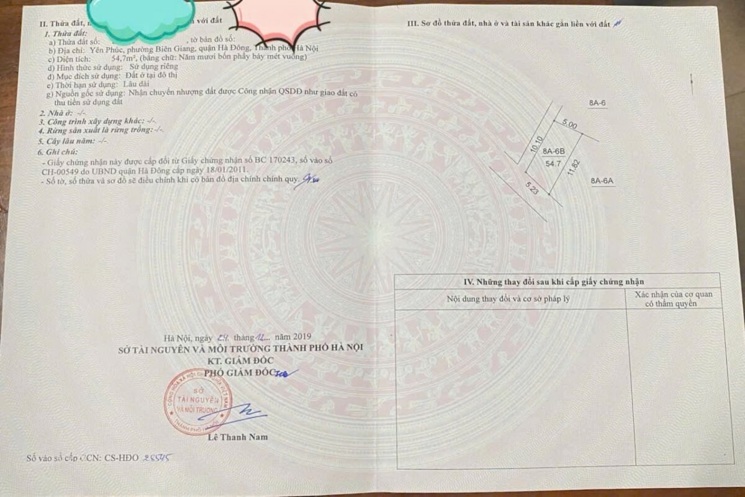 II. Thửa đất, với đất
1. Thửa đất:
a) Thửa đất số: , tờ bản đồ số:
b) Địa chỉ: Yên Phúc, phường Biên Giang, quận Hà Đông, Thành phố Hà Nội
c) Diện tích: 54,7m², (bằng chữ: Năm mươi bốn phẩy bảy mét vuông)
d) Hình thức sử dụng: Sử dụng riêng
đ) Mục đích sử dụng: Đất ở tại đô thị
e) Thời hạn sử dụng: Lâu dài
g) Nguồn gốc sử dụng: Nhận chuyển nhượng đất được Công nhận QSDĐ như giao đất có
thu tiền sử dụng đất
2. Nhà ở: -/-
3. Công trình xây dựng khác: -/-
4. Rừng sản xuất là rừng trồng: -/-
5. Cây lâu năm: -/-
6. Ghi chú:
- Giấy chứng nhận này được cấp đổi từ Giấy chứng nhận số BC 170243, số vào sổ
CH-00549 do UBND quận Hà Đông cấp ngày 18/01/2011.
- Số tờ, số thửa và sơ đồ sẽ điều chỉnh khi có bản đồ địa chính chính quy.
Hà Nội, ngày 24 tháng 12 năm 2019
SỞ TÀI NGUYÊN VÀ MÔI TRƯỜNG THÀNH PHỐ HÀ NỘI
KT. GIÁM ĐỐC
PHÓ GIÁM ĐỐC
SỞ
TÀI NGUYÊN
VÀ MÔI TRƯỜNG
Lê Thanh Nam
Số vào sổ cấp GCN: CS-HĐO
III. Sơ đồ thửa đất, nhà ở và tài sản khác gắn liền với đất
8A-6
5.00
10.10
8A-6B
54.7
11.82
8A-6A
5.23
IV. Những thay đổi sau khi cấp giấy chứng nhận
Nội dung thay đổi và cơ sở pháp lý
Xác nhận của cơ quan
có thẩm quyền